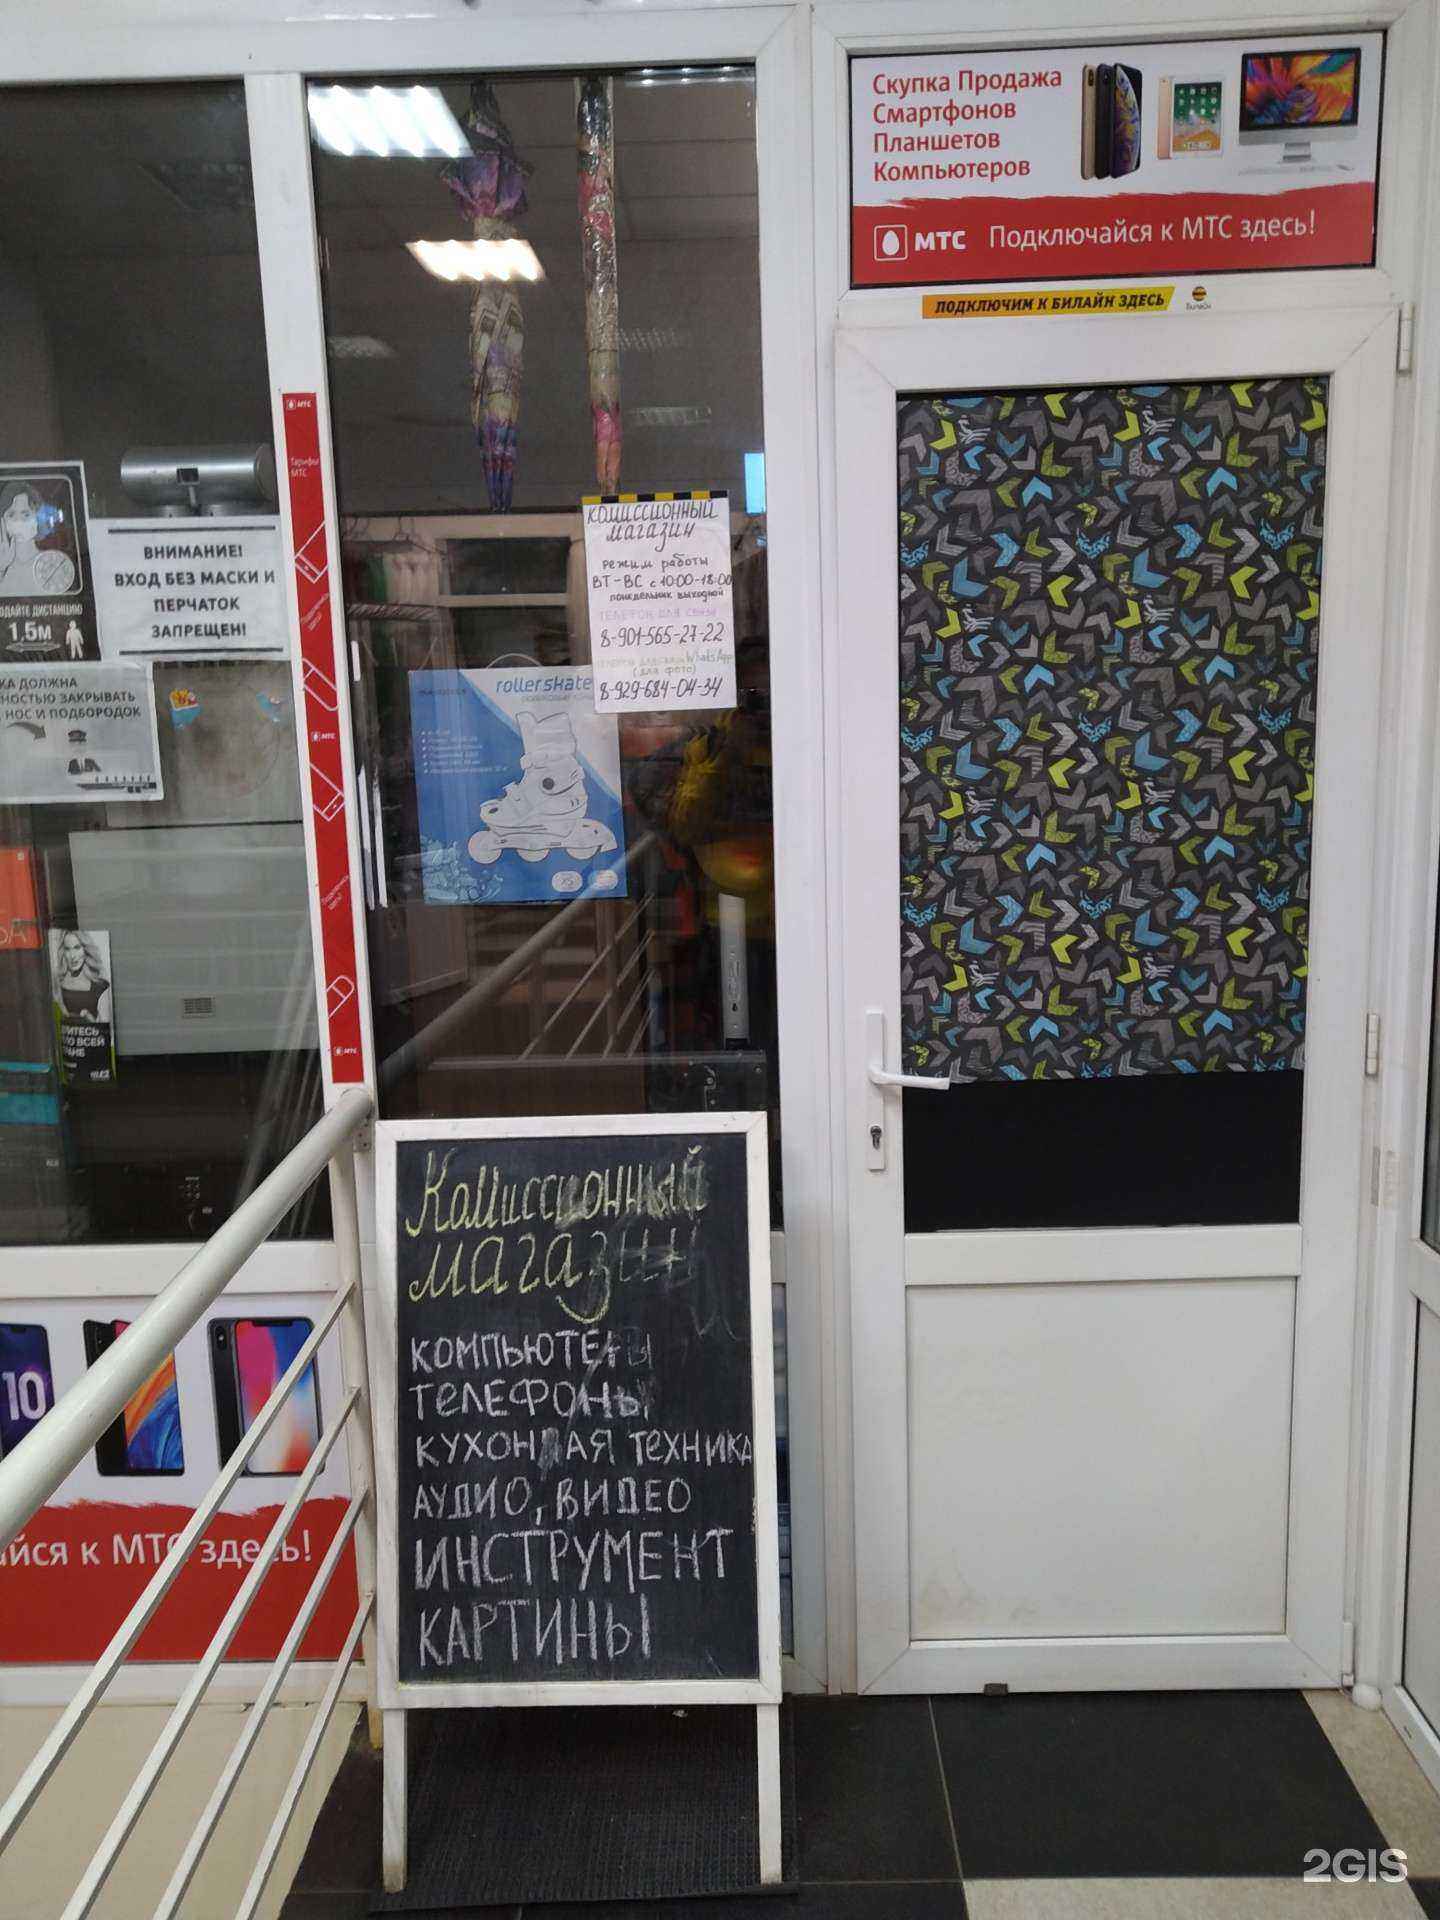 Скупка Продажа
Смартфонов
Планшетов
Компьютеров
МТС Подключайся к МТС здесь!
ПОДКЛЮЧИМ К БИЛАЙН ЗДЕСЬ
Билайн
МТС
Тарифы
МТС
Подключись
здесь!
МТС
Подключись
здесь!
МТС
КОМИССИОННЫЙ
МАГАЗИН
режим работы
ВТ-ВС с 10:00-18:00
понедельник выходной
ТЕЛЕФОН ДЛЯ СВЯЗИ
8-901-565-27-22
WhatsApp
(для фото)
8-929-684-04-34
ВНИМАНИЕ!
ВХОД БЕЗ МАСКИ И
ПЕРЧАТОК
ЗАПРЕЩЕН!
ДАЙТЕ ДИСТАНЦИЮ
1,5м
КА ДОЛЖНА
НОСТЬЮ ЗАКРЫВАТЬ
НОС И ПОДБОРОДОК
rollerskate
ИТЕСЬ
ПО ВСЕЙ
ТЕЛЕ2
10
йся к МТС здесь!
Комиссионный
магазин
КОМПЬЮТЕРЫ
ТЕЛЕФОНЫ
КУХОННАЯ ТЕХНИКА
АУДИО, ВИДЕО
ИНСТРУМЕНТ
КАРТИНЫ
2GIS